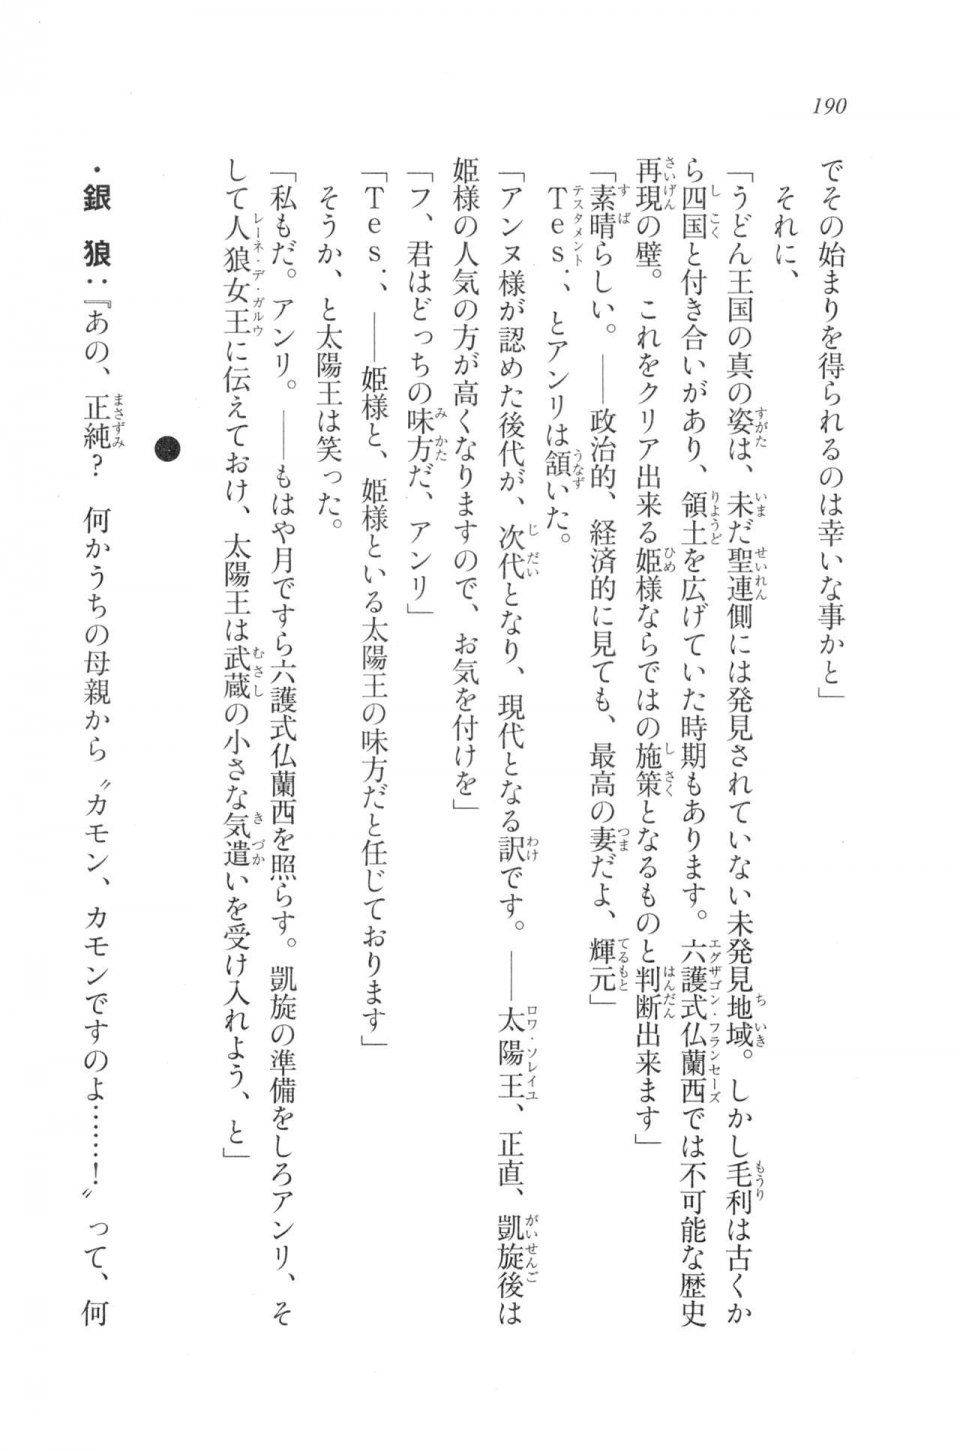 190
でその始まりを得られるのは幸いな事かと」
それに、
「うどん王国の真の姿は、未だ聖連側には発見されていない未発見地域。しかし毛利は古くか
ら四国と付き合いがあり、領土を広げていた時期もあります。六護式仏蘭西では不可能な歴史
再現の壁。これをクリア出来る姫様ならではの施策となるものと判断出来ます」
「素晴らしい。――政治的、経済的に見ても、最高の妻だよ、輝元」
Tes.、とアンリは頷いた。
「アンヌ様が認めた後代が、次代となり、現代となる訳です。――太陽王、正直、凱旋後は
姫様の人気の方が高くなりますので、お気を付けを」
「フ、君はどっちの味方だ、アンリ」
「Tes.、――姫様と、姫様といる太陽王の味方だと任じております」
そうか、と太陽王は笑った。
「私もだ。アンリ。――もはや月ですら六護式仏蘭西を照らす。凱旋の準備をしろアンリ、そ
して人狼女王に伝えておけ、太陽王は武蔵の小さな気遣いを受け入れよう、と」
●
・銀　狼：『あの、正純？　何かうちの母親から〝カモン、カモンですのよ……！〟って、何